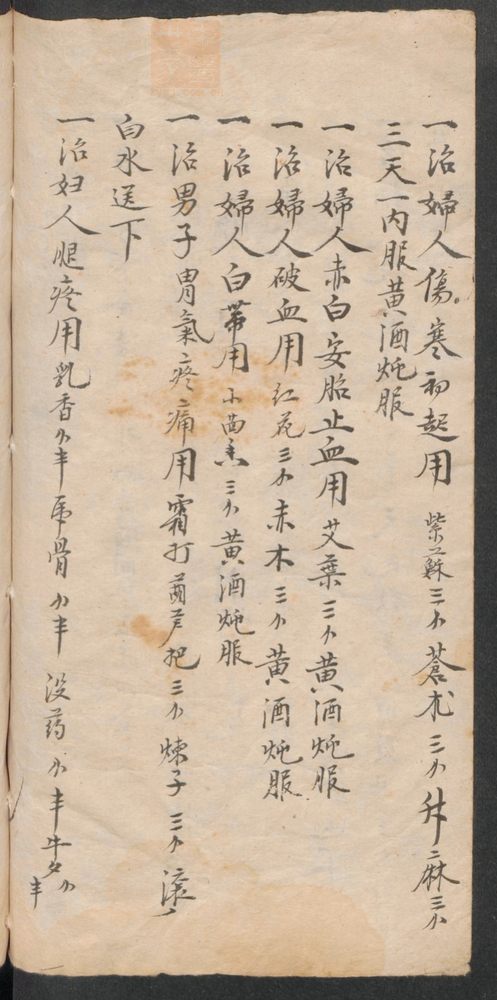 一治婦人傷寒初起用 紫蘇三小 蒼朮 三小 升麻三小
三天一内服黄酒炖服
一治婦人赤白安胎止血用艾葉三小黄酒炖服
一治婦人破血用 红花三小赤木三小黄酒炖服
一治婦人白帶用小茴香三小黄酒炖服
一治男子胃氣疼痛用霜打葫芦把三小煉子三小滚
白水送下
一治妇人腿疼用乳香小半虎骨小半没药小半 小半